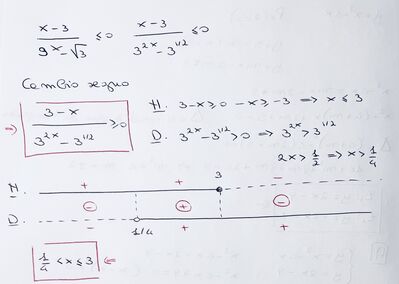 (x-3)/(9^x-√3) ≤0   (x-3)/(3^2x-3^1/2) ≤0
Cambio segno
⇒ (3-x)/(3^2x-3^1/2) ≥0
N. 3-x≥0 -x≥-3 ⇒ x≤3
D. 3^2x-3^1/2>0 ⇒ 3^2x>3^1/2
2x>1/2 ⇒ x>1/4
3
N. + + -
⊖ ⊕ ⊖
D. - + +
1/4
1/4 <x≤3 ⇐